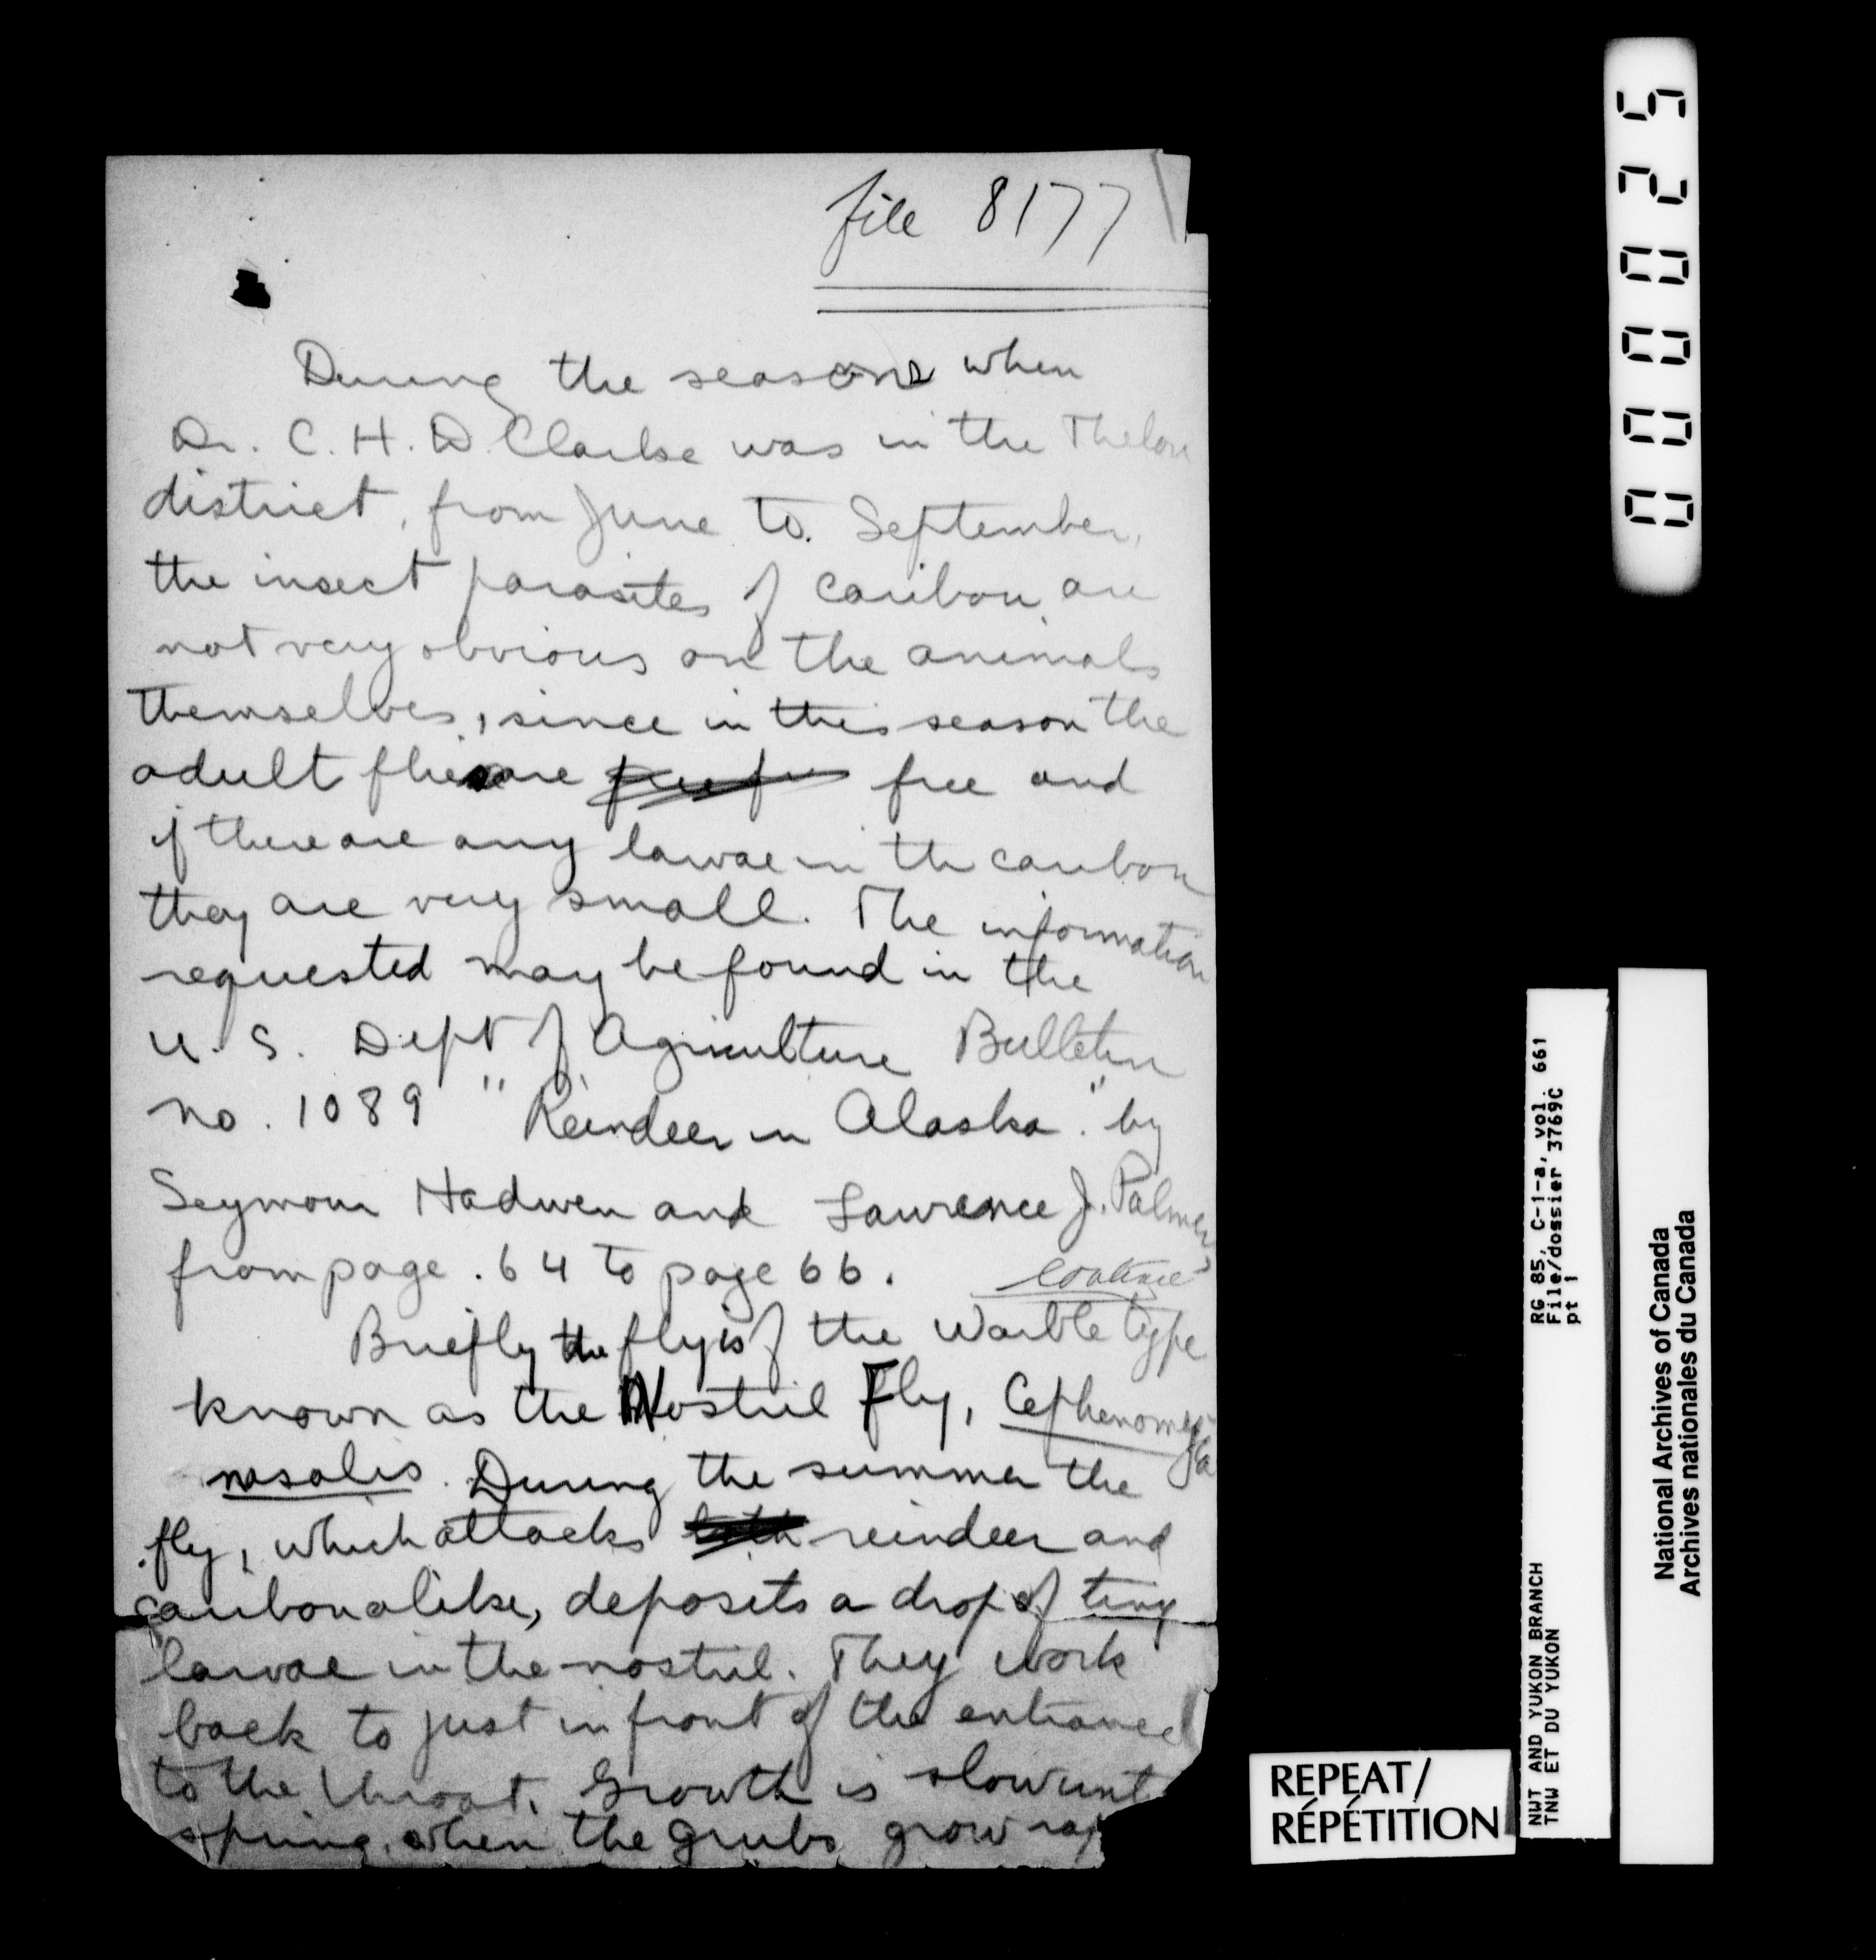 file 8177
During the seasons when
Dr. C. H. D. Clarke was in the Thelon
district, from June to September,
the insect parasites of caribou are
not very obvious on the animals
themselves, since in this season the
adult flies are free and
if there are any larvae in the caribou
they are very small. The information
requested may be found in the
U. S. Dept of Agriculture Bulletin
no. 1089 "Reindeer in Alaska." by
Seymour Hadwen and Lawrence J. Palmer,
from page . 64 to page 66.
Briefly the fly is of the Warble type
known as the Nostril Fly, Cephenomyia
nasalis. During the summer the
fly, which attacks both reindeer and
caribou alike, deposits a drop of tiny
larvae in the nostril. They work
back to just in front of the entrance
to the throat. Growth is slow unt
spring, when the grubs grow rap
000025
RG 85, C-1-a, vol. 661
File/dossier 3769C
pt 1
NWT AND YUKON BRANCH
TNW ET DU YUKON
National Archives of Canada
Archives nationales du Canada
REPEAT/
RÉPÉTITION